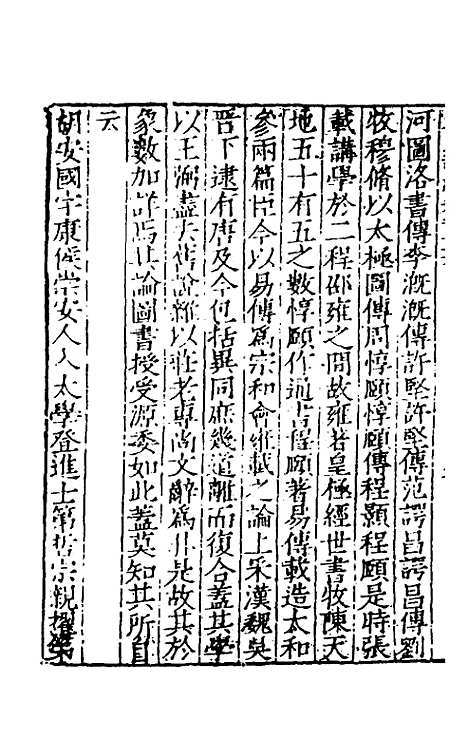 河圖洛書傳李溉溉傳許堅許堅傳范諤昌諤昌傳劉
牧穆脩以太極圖傳周惇頤惇頤傳程顥程頤是時張
載講學於二程邵雍之間故雍著皇極經世書牧陳天
地五十有五之數惇頤作通書程頤著易傳載造太和
參兩篇臣今以易傳爲宗和會雍載之論上采漢魏吳
晉下逮有唐及今包括異同庶幾道離而復合蓋其學
以王弼盡去舊說雜以莊老專尚文辭爲非是故其於
象數加詳焉其論圖書授受源委如此蓋莫知其所自
云
胡安國字康侯崇安人入太學登進士第哲宗親擢第